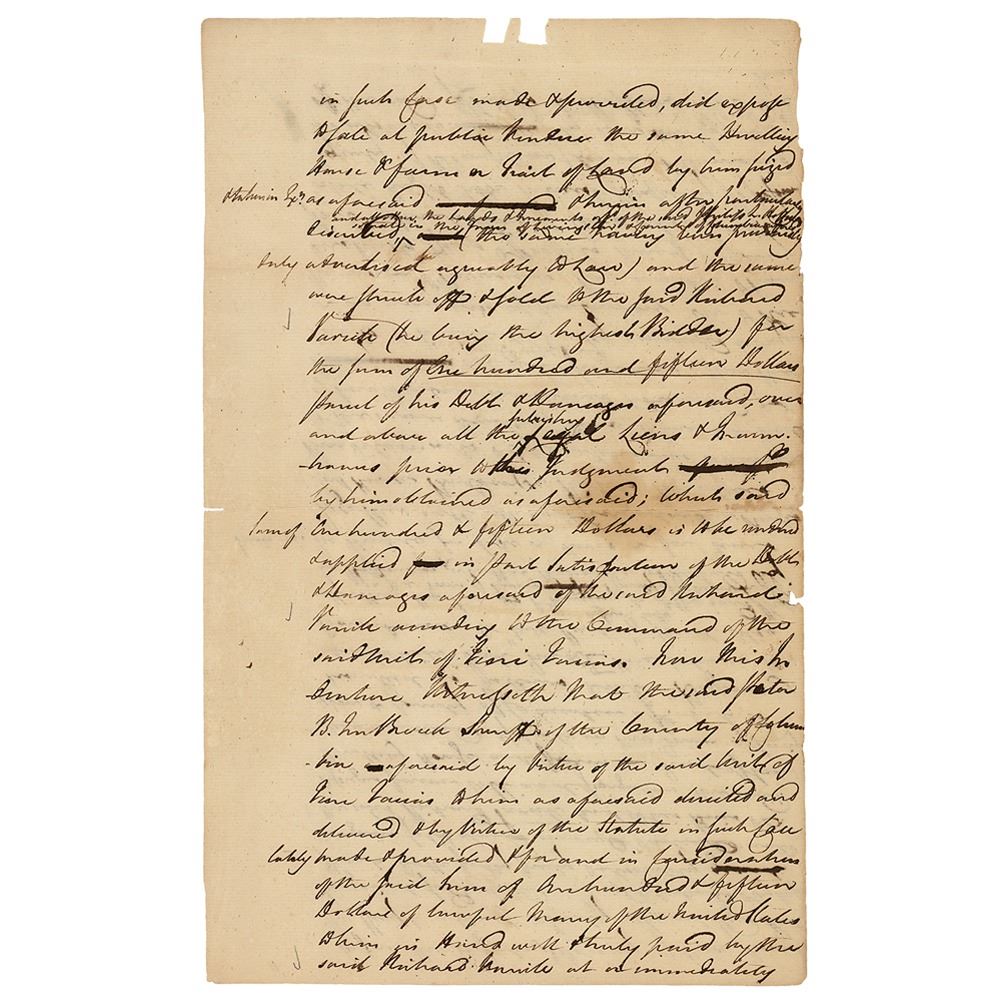 in such Case made & provided, did expose
to sale at publick Vendue the same Dwelling
House & farm or Tract of Land by him seized
as aforesaid therein after particularly
and all other the Lands & tenements of the said
described, (the same having been previously
duly advertised agreeably to Law) and the same
were struck off & sold to the said Richard
Varick (he being the highest Bidder) for
the sum of One hundred and fifteen Dollars
parcel of his Debt & Damages aforesaid, over
and above all the subsisting Legal Liens & Incum-
-brances prior to this Judgment
by him obtained as aforesaid; which said
sum of One hundred & fifteen Dollars is to be
& applied in part Satisfaction of the Debt
& Damages aforesaid of the said Richard
Varick according to the Command of the
said Writ of Fieri Facias. Now this In
-denture Witnesseth that the said Peter
B. Ten Broeck Sheriff of the County of Colum
-bia aforesaid by Virtue of the said Writ of
Fieri Facias to him as aforesaid directed and
delivered & by Virtue of the Statute in such Case
lately made & provided & for and in Consideration
of the said Sum of One hundred & fifteen
Dollars of lawful Money of the United States
to him in Hand well & truly paid by the
said Richard Varick at or immediately